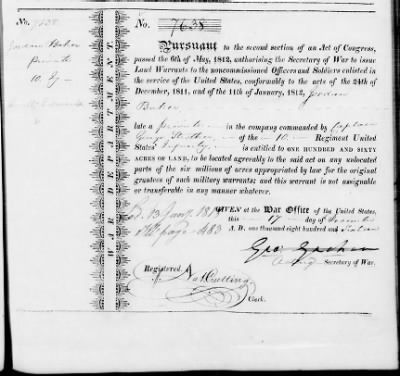 No. 7638
No. 7638
Jordan Baker
Private
10
PURSUANT to the second section of an Act of Congress,
passed the 6th of May, 1812, authorising the Secretary of War to issue
Land Warrants to the noncommissioned Officers and Soldiers enlisted in
the service of the United States, conformably to the acts of the 24th of
December, 1811, and of the 11th of January, 1812, Jordan
Baker
late a private in the company commanded by Captain
George of the 10 Regiment United
States' Infantry is entitled to ONE HUNDRED AND SIXTY
ACRES OF LAND, to be located agreeably to the said act on any unlocated
parts of the six millions of acres appropriated by law for the original
grantees of such military warrants; and this warrant is not assignable
or transferable in any manner whatever.
WAR DEPARTMENT.
GIVEN at the War Office of the United States,
this 17 day of
A. D. one thousand eight hundred and
483
Geo. Graham
Acting Secretary of War.
Registered.
Nat Cutting
Clerk.